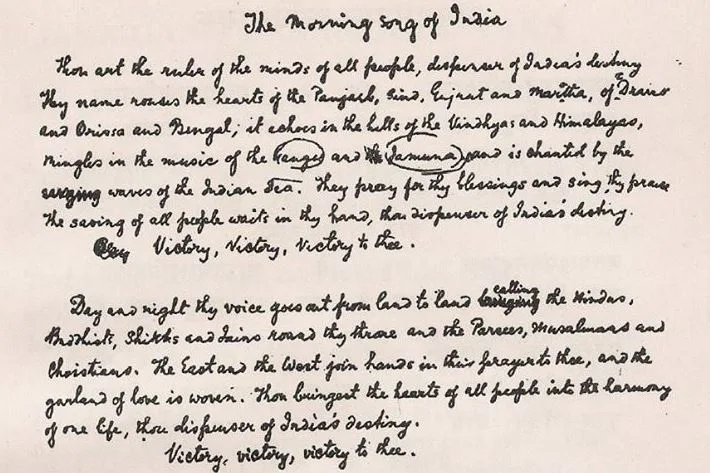 The Morning song of India
Thou art the ruler of the minds of all people, dispenser of India's destiny
Thy name rouses the hearts of the Panjab, Sind, Gujrat and Maratha, of Dravid
and Orissa and Bengal; it echoes in the hills of the Vindhyas and Himalayas,
mingles in the music of the Ganges and Jamuna and is chanted by the
waves of the Indian Sea. They pray for thy blessings and sing thy praise
The saving of all people waits in thy hand, thou dispenser of India's destiny.
Victory, Victory, Victory to thee.
Day and night thy voice goes out from land to land calling the Hindus,
Buddhists, Shikhs and Jains round thy throne and the Parsees, Musalmans and
Christians. The East and the West join hands in their prayer to thee, and the
garland of love is woven. Thou bringest the hearts of all people into the harmony
of one life, thou dispenser of India's destiny.
Victory, victory, victory to thee.